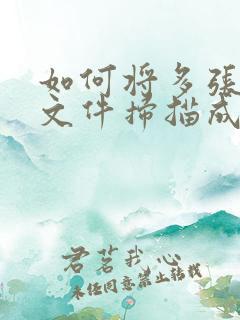 如何将多張
文件掃描成
君茗我心
未经同意禁止转载